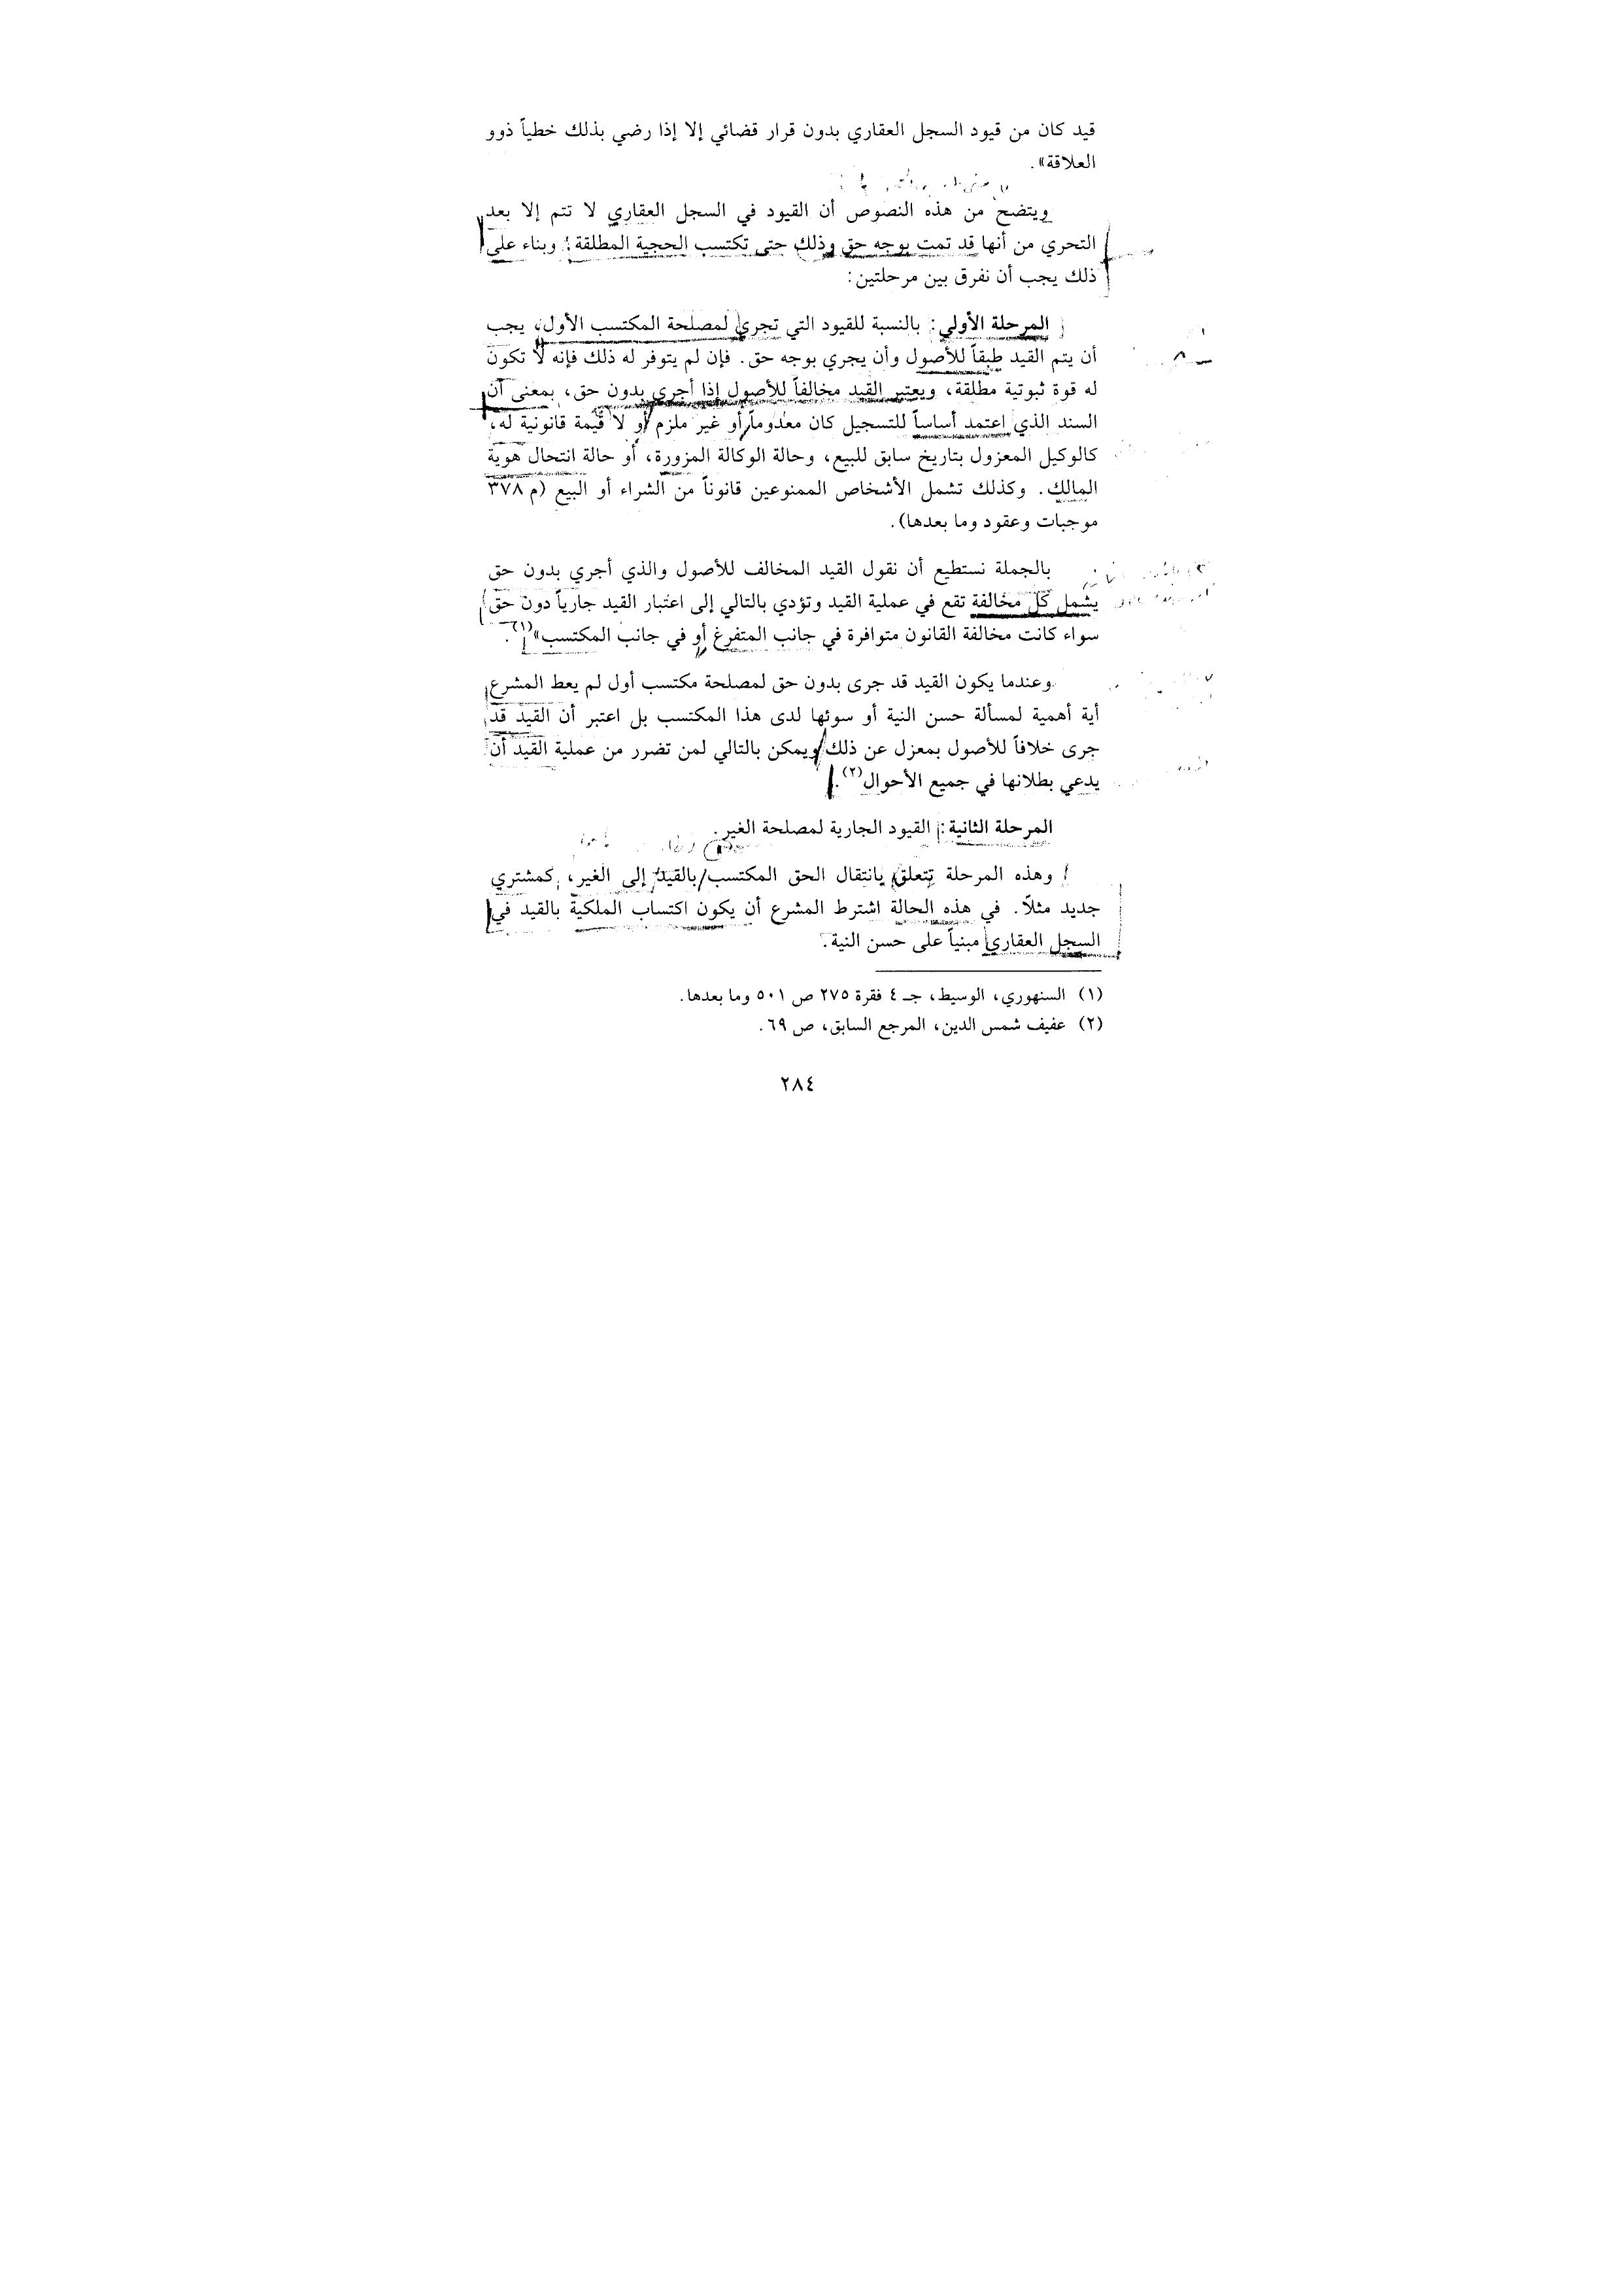 قيد كان من قيود السجل العقاري بدون قرار قضائي إلا إذا رضي بذلك خطياً ذوو
العلاقة».
ويتضح من هذه النصوص أن القيود في السجل العقاري لا تتم إلا بعد
التحري من أنها قد تمت بوجه حق وذلك حتى تكتسب الحجية المطلقة؛ وبناء على
ذلك يجب أن نفرق بين مرحلتين:
المرحلة الأولى: بالنسبة للقيود التي تجري لمصلحة المكتسب الأول، يجب
أن يتم القيد طبقاً للأصول وأن يجري بوجه حق. فإن لم يتوفر له ذلك فإنه لا تكون
له قوة ثبوتية مطلقة، ويعتبر القيد مخالفاً للأصول إذا أجري بدون حق، بمعنى أن
السند الذي اعتمد أساساً للتسجيل كان معدوماً أو غير ملزم أو لا قيمة قانونية له،
كالوكيل المعزول بتاريخ سابق للبيع، وحالة الوكالة المزورة، أو حالة انتحال هوية
المالك. وكذلك تشمل الأشخاص الممنوعين قانوناً من الشراء أو البيع (م ٣٧٨
موجبات وعقود وما بعدها).
بالجملة نستطيع أن نقول القيد المخالف للأصول والذي أجري بدون حق
يشمل كل مخالفة تقع في عملية القيد وتؤدي بالتالي إلى اعتبار القيد جارياً دون حق
سواء كانت مخالفة القانون متوافرة في جانب المتفرغ أو في جانب المكتسب»(١).
وعندما يكون القيد قد جرى بدون حق لمصلحة مكتسب أول لم يعط المشرع
أية أهمية لمسألة حسن النية أو سوئها لدى هذا المكتسب بل اعتبر أن القيد قد
جرى خلافاً للأصول بمعزل عن ذلك ويمكن بالتالي لمن تضرر من عملية القيد أن
يدعي بطلانها في جميع الأحوال(٢).
المرحلة الثانية: القيود الجارية لمصلحة الغير.
وهذه المرحلة تتعلق بانتقال الحق المكتسب بالقيد إلى الغير، كمشتري
جديد مثلاً. في هذه الحالة اشترط المشرع أن يكون اكتساب الملكية بالقيد في
السجل العقاري مبنياً على حسن النية.
(١) السنهوري، الوسيط، جـ ٤ فقرة ٢٧٥ ص ٥٠١ وما بعدها.
(٢) عفيف شمس الدين، المرجع السابق، ص ٦٩.
٢٨٤